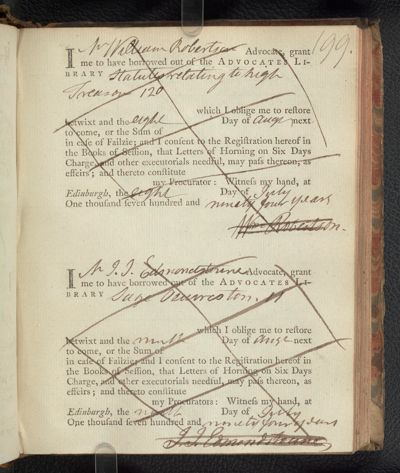 199.
I Mr William Robertson Advocate, grant
me to have borrowed out of the ADVOCATES LI-
BRARY Statutes relating to high
Treason 120
which I oblige me to restore
betwixt and the eight Day of Augt next
to come, or the Sum of
in case of Failzie; and I consent to the Registration hereof in
the Books of Session, that Letters of Horning on Six Days
Charge, and other executorials needful, may pass thereon, as
effeirs; and thereto constitute
my Procurator: Witness my hand, at
Edinburgh, the eight Day of July
One thousand seven hundred and ninety four years
Wm Robertson.
I Mr J. J. Edmondstoune Advocate, grant
me to have borrowed out of the ADVOCATES LI-
BRARY
which I oblige me to restore
betwixt and the ninth Day of Augt next
to come, or the Sum of
in case of Failzie; and I consent to the Registration hereof in
the Books of Session, that Letters of Horning on Six Days
Charge, and other executorials needful, may pass thereon, as
effeirs; and thereto constitute
my Procurators: Witness my hand, at
Edinburgh, the ninth Day of July
One thousand seven hundred and ninety four years